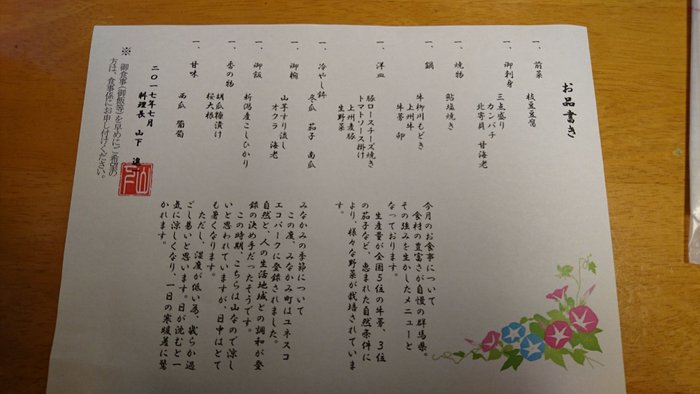 お品書き
一、前菜
枝豆豆腐
一、御刺身
三点盛り
カンパチ
北寄貝 甘海老
一、焼物
鮎塩焼き
一、鍋
牛柳川もどき
上州牛
牛蒡 卵
一、洋皿
豚ロースチーズ焼き
トマトソース掛け
上州麦豚
生野菜
一、冷やし鉢
冬瓜 茄子 南瓜
一、御椀
山芋すり流し
オクラ 海老
一、御飯
新潟産こしひかり
一、香の物
胡瓜糠漬け
桜大根
一、甘味
西瓜 葡萄
二〇一七年七月
料理長 山下 進
※ 御食事(御飯等)を早めにご希望の
方は、食事係にお申し付けください。
今月のお食事について
食材の豊富さが自慢の群馬県。
その強みを生かしたメニューと
なっております。
生産量が全国5位の牛蒡、3位
の茄子など、恵まれた自然条件に
より、様々な野菜が栽培されていま
す。
みなかみの季節について
この度、みなかみ町はユネスコ
エコパークに登録されました。
自然と、人の生活地域との調和が登
録の決め手だったそうです。
この時期、こちらは山なので涼し
いと思われていますが、日中はとて
も暑くなります。
ただし、湿度が低い為、幾らか過
ごし易いと思います。日が沈むと一
気に涼しくなり、一日の寒暖差に驚
かれます。